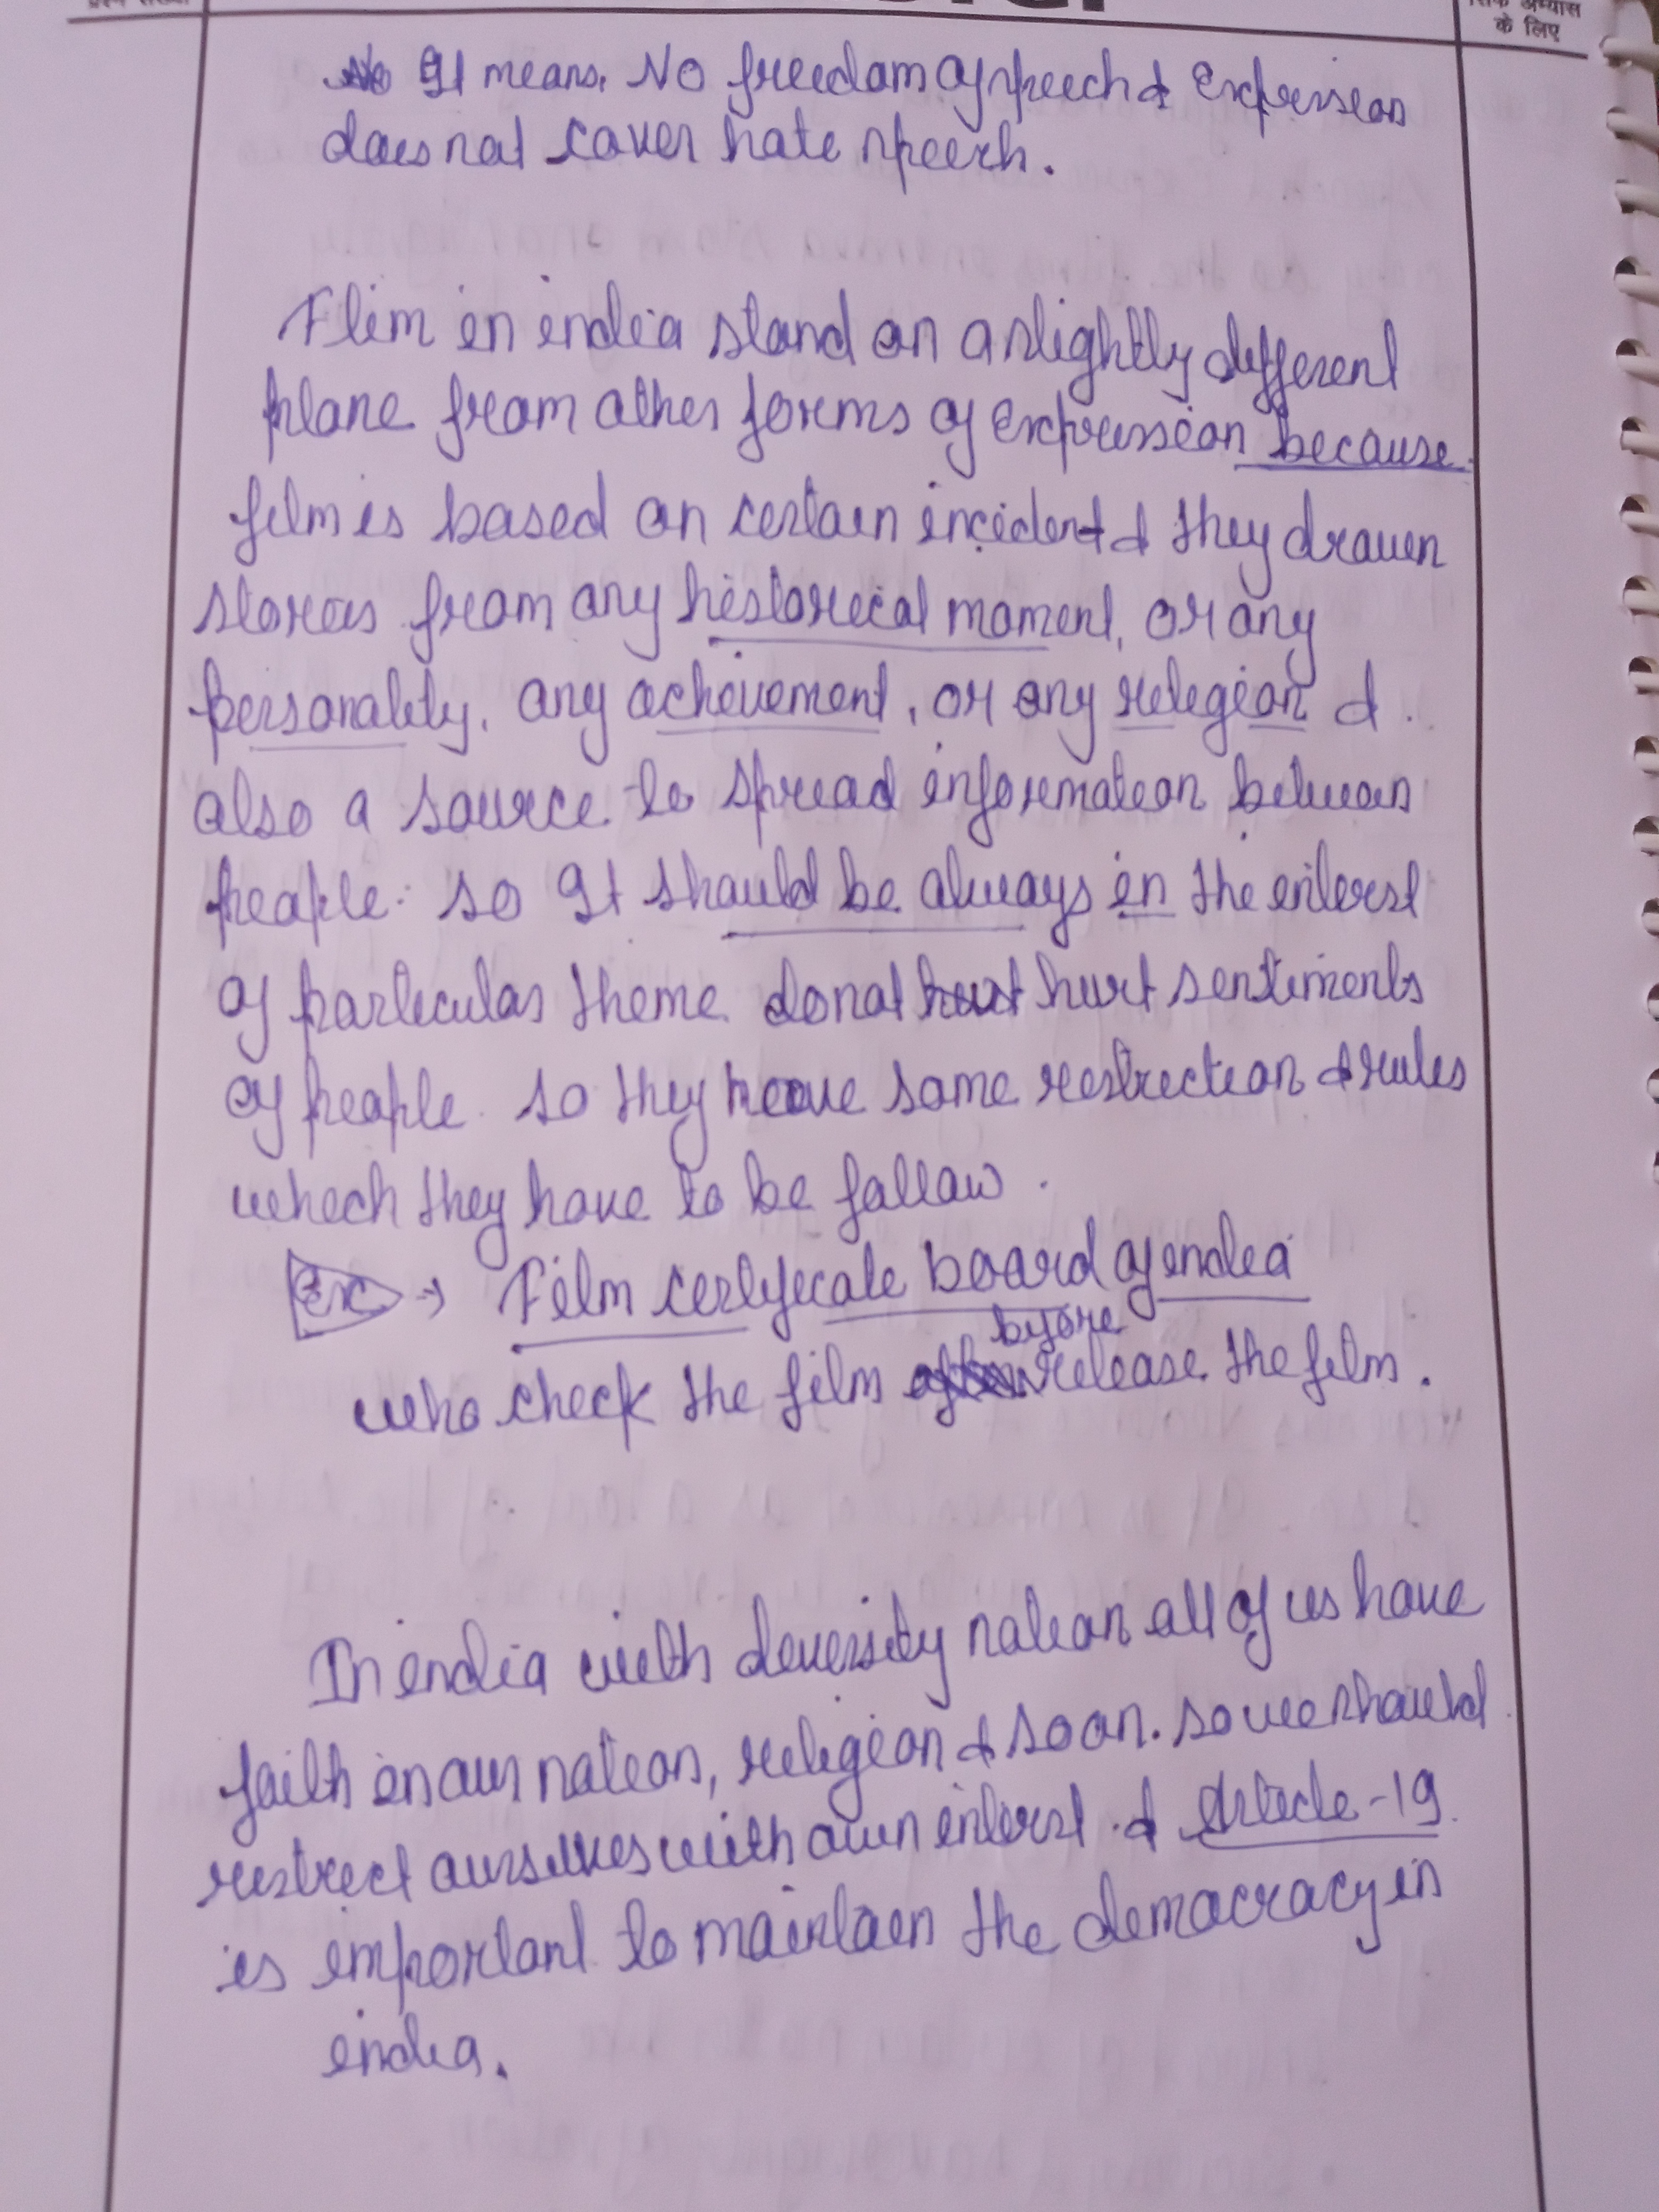 के लिए
It means. No freedom of speech & Expression
does not cover hate speech.
Flim in india stand on a slightly different
plane from other forms of expression because
film is based on certain incident & they drawn
stories from any historical moment, or any
personality, any achievement, or any religion &
also a source to spread information between
people. so It should be always in the interest
of particular theme do not hurt hurt sentiments
of people so they have some restriction & rules
which they have to be follow.
Ex → Film certificate board of india
before
who check the film release the film.
In india with diversity nation all of us have
faith in our nation, religion & so on. so we should
restrict ourselves with own interest & Article-19
is important to maintain the democracy in
india.